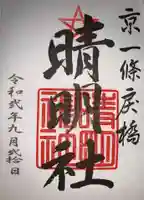 京一條戻橋
晴明社
令和弐年九月弐拾日